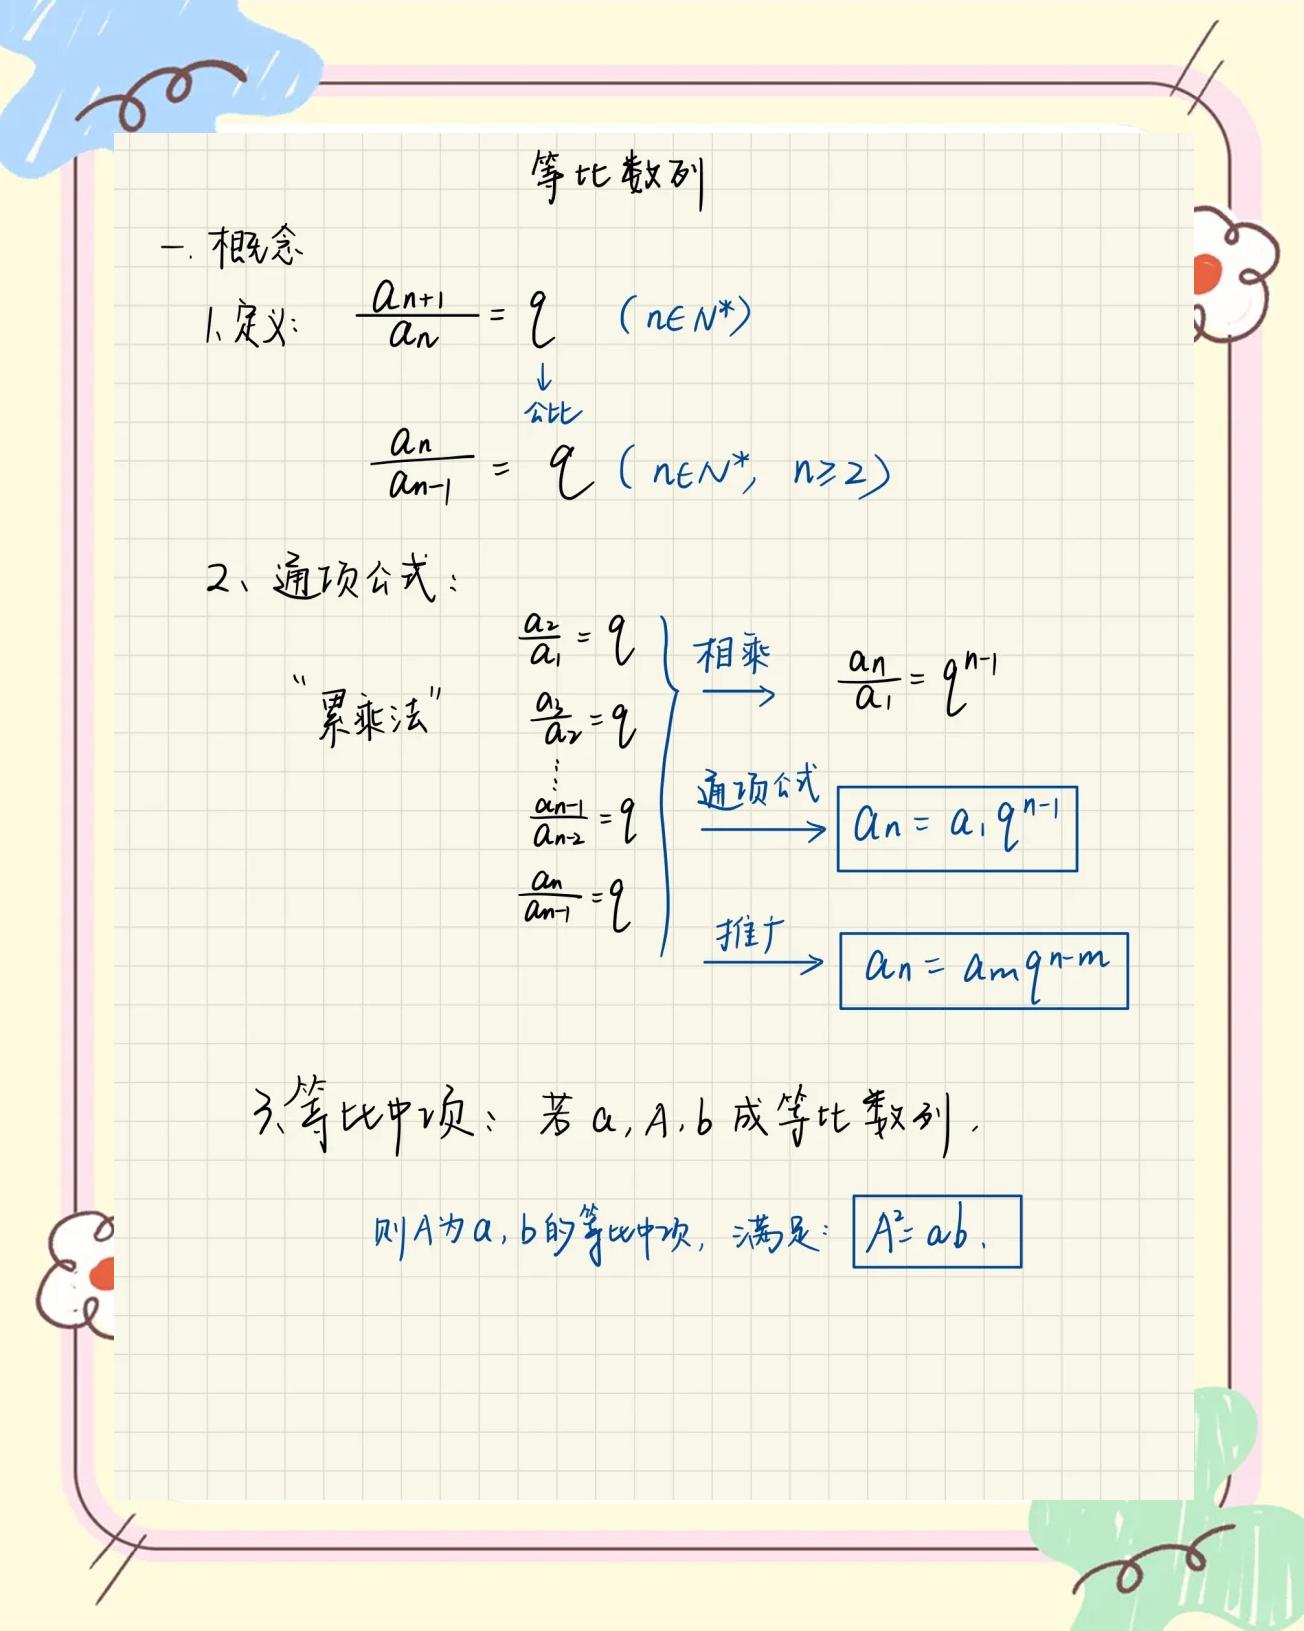 等比数列
一. 概念
1、定义: a_{n+1}/a_n = q (n∈N*)
↓
公比
a_n/a_{n-1} = q (n∈N*, n≥2)
2、通项公式:
“累乘法”
a_2/a_1 = q
a_3/a_2 = q
⋮
a_{n-1}/a_{n-2} = q
a_n/a_{n-1} = q
相乘 → a_n/a_1 = q^{n-1}
通项公式 → a_n = a_1 q^{n-1}
推广 → a_n = a_m q^{n-m}
3、等比中项: 若 a, A, b 成等比数列.
则A为a, b的等比中项, 满足: A²=ab.